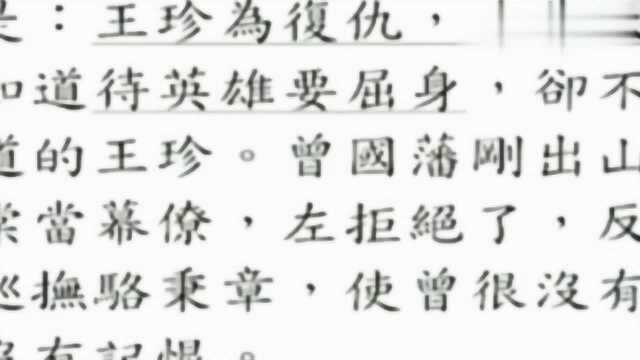 是：王珍為復仇，
知道待英雄要屈身，卻不
道的王珍。曾國藩剛出山
棠當幕僚，左拒絕了，反
巡撫駱秉章，使曾很沒有
沒有記恨。